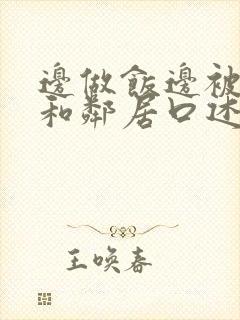 邊做飯邊被
和鄰居口述
王喚春